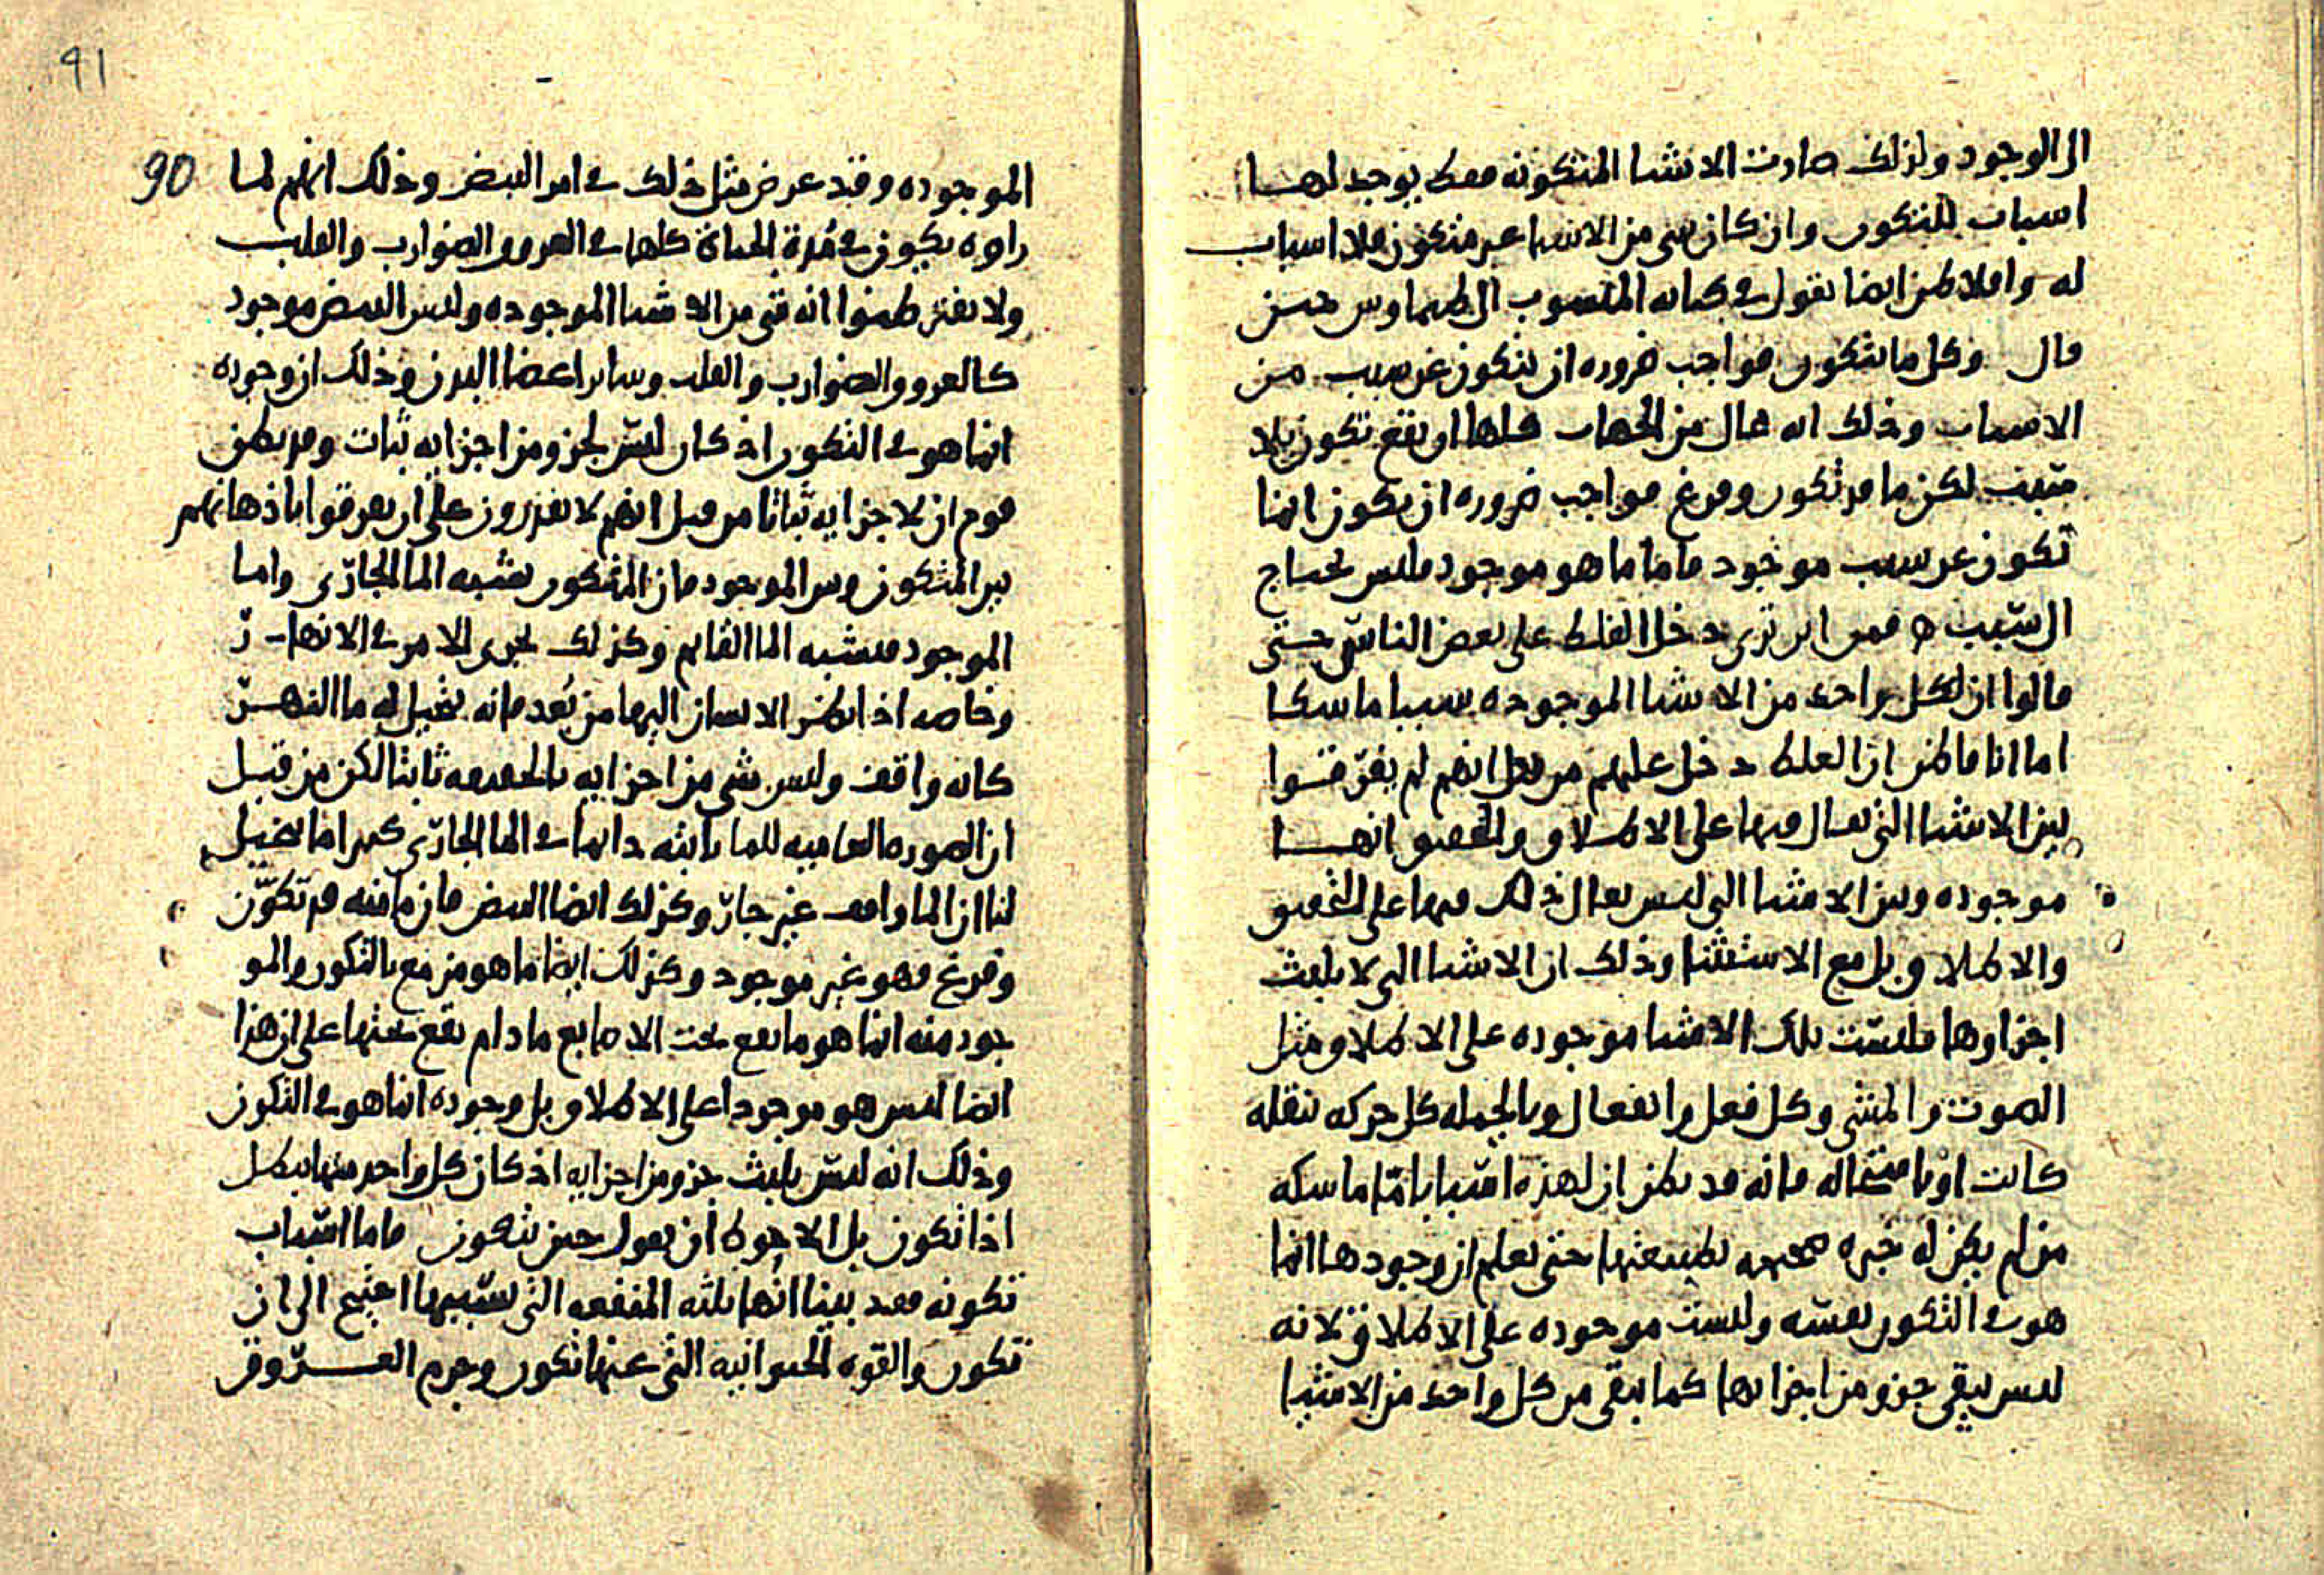 الى الوجود ولذلك صارت الاشيا المتكونه فقط يوجد لها
اسباب للتكون وان كان شى من الاشيا غير متكون فلا اسباب
له وافلاطن ايضا يقول فى كتابه المنسوب الى طيماوس حين
قال وكل ما يتكون فواجب ضروره ان يتكون عن سبب من
الاسباب وذلك انه محال من الجهات كلها ان يقع تكون بلا
سبب لكن ما قد تكون وفرغ فواجب ضروره ان يكون انما
تكون عن سبب موجود فاما ما هو موجود فليس يحتاج
الى سبب ه فمن اين ترى دخل الغلط على بعض الناس حتى
قالوا ان لكل واحد من الاشيا الموجوده سببا ماسكا
اما انا فاظن ان الغلط دخل عليهم من قبل انهم لم يفرقوا
بين الاشيا التى يقال فيها على الاطلاق والتحقيق انها
موجوده وبين الاشيا التى ليس يقال ذلك فيها على التحقيق
والاطلاق بل مع الاستثنا وذلك ان الاشيا التى لا يلبث
اجزاوها فليست تلك الاشيا موجوده على الاطلاق مثل
الصوت والمشى وكل فعل وانفعال وبالجمله كل حركه نقله
كانت او باستحاله فانه قد يظن ان لهذه اسبابا ما ماسكه
من لم يكن له خبره صحيحه بطبيعتها حتى يعلم ان وجودها انما
هو فى التكون نفسه وليست موجوده على الاطلاق لانه
ليس يبقى جزو من اجزايها كما يبقى من كل واحد من الاشيا
91
90
الموجوده وقد عرض مثل ذلك فى امر النبض وذلك انهم لما
راوه يكون فى مدة الحياة كلها فى العروق الضوارب والقلب
ولا يفتر ظنوا انه شى من الاشيا الموجوده وليس النبض موجود
كالعروق الضوارب والقلب وساير اعضا البدن وذلك ان وجوده
انما هو فى التكون اذ كان ليس لجزو من اجزايه ثبات وقد يظن
قوم ان لاجزايه ثباتا من قبل انهم لا يقدرون على ان يعرفوا باذهانهم
بين المتكون وبين الموجود فان المتكون يشبه الما الجارى واما
الموجود فيشبه الما القايم وكذلك يجرى الامر فى الانهار
وخاصه اذا نظر الانسان اليها من بعد فانه يخيل له ما النهر
كانه واقف وليس شى من اجزايه بالحقيقه ثابتا لكن من قبل
ان الصوره العاميه للما ثابته دايما فى الما الجارى كثيرا ما يخيل
لنا ان الما واقف غير جار وكذلك ايضا النبض فان ما منه قد تكون
وفرغ فهو غير موجود وكذلك ايضا ما هو مزمع بالتكون والمو
جود منه انما هو ما يقع تحت الاصابع ما دام يقع تحتها على ان هذا
ايضا ليس هو موجودا على الاطلاق بل وجوده انما هو فى التكون
وذلك انه ليس يلبث جزو من اجزايه اذ كان كل واحد منها يبطل
اذا تكون بل الاجود ان يقول حين يتكون فاما اسباب
تكونه فقد بينا انها ثلثه المنفعه التى بسببها احتيج الى ان
تكون والقوه الحيوانيه التى عنها تكون وجرم العروق